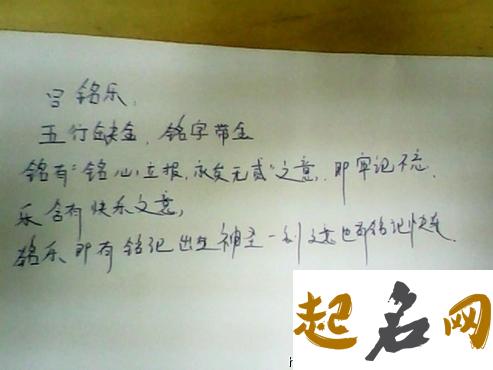 吕铭乐,
五行缺金, 铭字带金
铭有"铭心立报,永矢无贰"之意, 即牢记不忘.
乐含有快乐之意,
铭乐即有铭记出生神圣一刻之意也有铭记快乐.
起名网
h